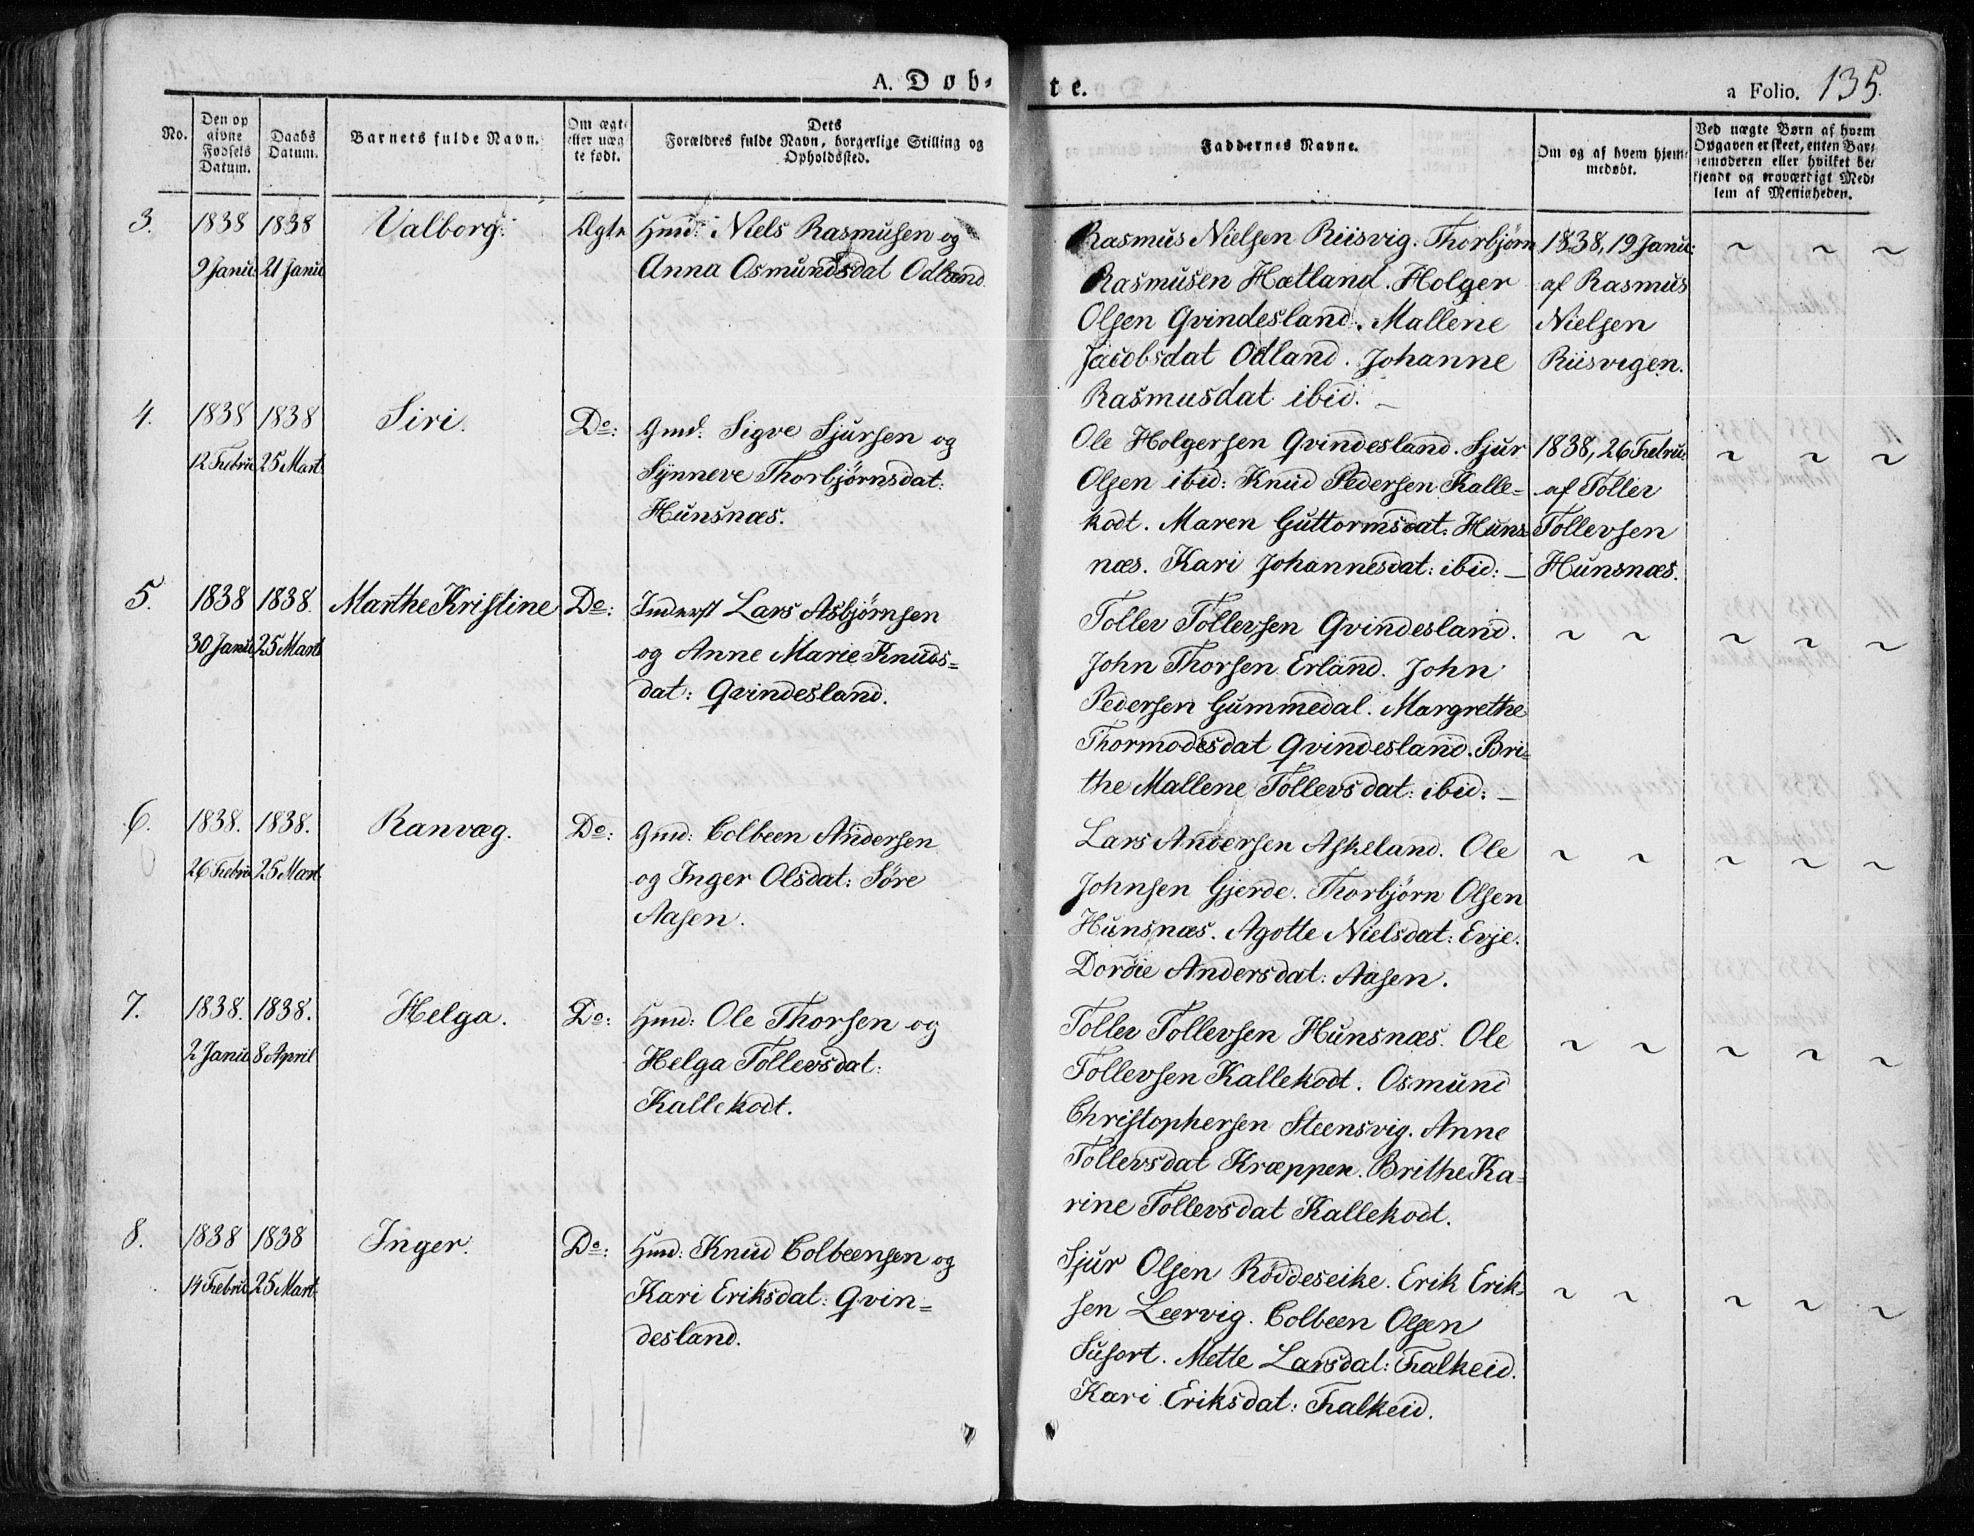 A. Døb-
te.
a Folio. 135.
No.
Den op
givne
Fødsels
Datum.
Daabs
Datum.
Barnets fulde Navn.
Om ægte
eller uæg
te født.
Dets
Forældres fulde Navn, borgerlige Stilling og
Opholdssted.
Faddernes Navne.
Om og af hvem hjem-
medøbt.
Ved uægte Børn af hvem
Opgaven er skeet, enten Bar-
nemoderen eller hvilket be-
kjendt og troværdigt Med-
lem af Menigheden.
3.
1838
9 Janu:
1838
21 Janu
Valborg.
Ægte
Hmd: Niels Rasmusen og
Anna Osmundsdat Odland
Rasmus Nielsen Riisvig. Thorbjørn
Rasmusen Hætland. Holger
Olsen Qvindesland. Mallene
Jacobsdat Odland. Johanne
Rasmusdat ibid. —
1838, 19 Janu:
af Rasmus
Nielsen
Riisvigen.
~ ~ ~
4.
1838
12 Febru
1838
25 Mart
Siri.
Do:
Gmd: Sigve Sjursen og
Synneve Thorbjørnsdat:
Hunsnæs.
Ole Holgersen Qvindesland. Sjur
Olsen ibid: Knud Pedersen Kalle=
kodt. Maren Guttormsdat: Huns=
næs. Kari Johannesdat: ibid: —
1838, 26 Febru:
af Toller
Tollevsen
Hunsnæs.
~ ~ ~
5.
1838
30 Janu
1838.
25 Mart
Marthe Kristine
Do:
Inderst Lars Asbjørnsen
og Anne Marie Knuds=
dat: Qvindesland.
Toller Tollevsen Qvindesland.
John Thorsen Erland. John
Pedersen Gummedal. Margrethe
Thormodesdat Qvindesland. Bri=
the Mallene Tollevsdat: ibid: —
~ ~
~ ~ ~
6.
1838.
26 Febru
1838.
25 Mart
Ranvæg.
Do:
Gmd: Colbeen Andersen
og Inger Olsdat: Søre
Aasen.
Lars Andersen Askeland. Ole
Johnsen Gjerde. Thorbjørn Olsen
Hunsnæs. Agotte Nielsdat: Evje.
Dordie Andersdat: Aasen.
~ ~
~ ~ ~
7.
1838.
2 Janu
1838.
8 April
Helga.
Do:
Hmd: Ole Thorsen og
Helga Tollevsdat:
Kallekodt.
Toller Tollevsen Hunsnæs. Ole
Tollevsen Kallekodt. Osmund
Christophersen Steensvig. Anne
Tollevsdat Kræppen. Brithe Ka=
rine Tollevsdat Kallekodt.
~ ~
~ ~ ~
8.
1838
14 Febru
1838
25 Mart
Inger.
Do:
Hmd: Knud Colbeensen og
Kari Eriksdat: Qvin=
desland.
Sjur Olsen Røddeseike. Erik Erik=
sen Leervig. Colbeen Olsen
Susort. Mette Larsdat: Falkeid.
Kari Eriksdat: Falkeid.
~ ~
~ ~ ~